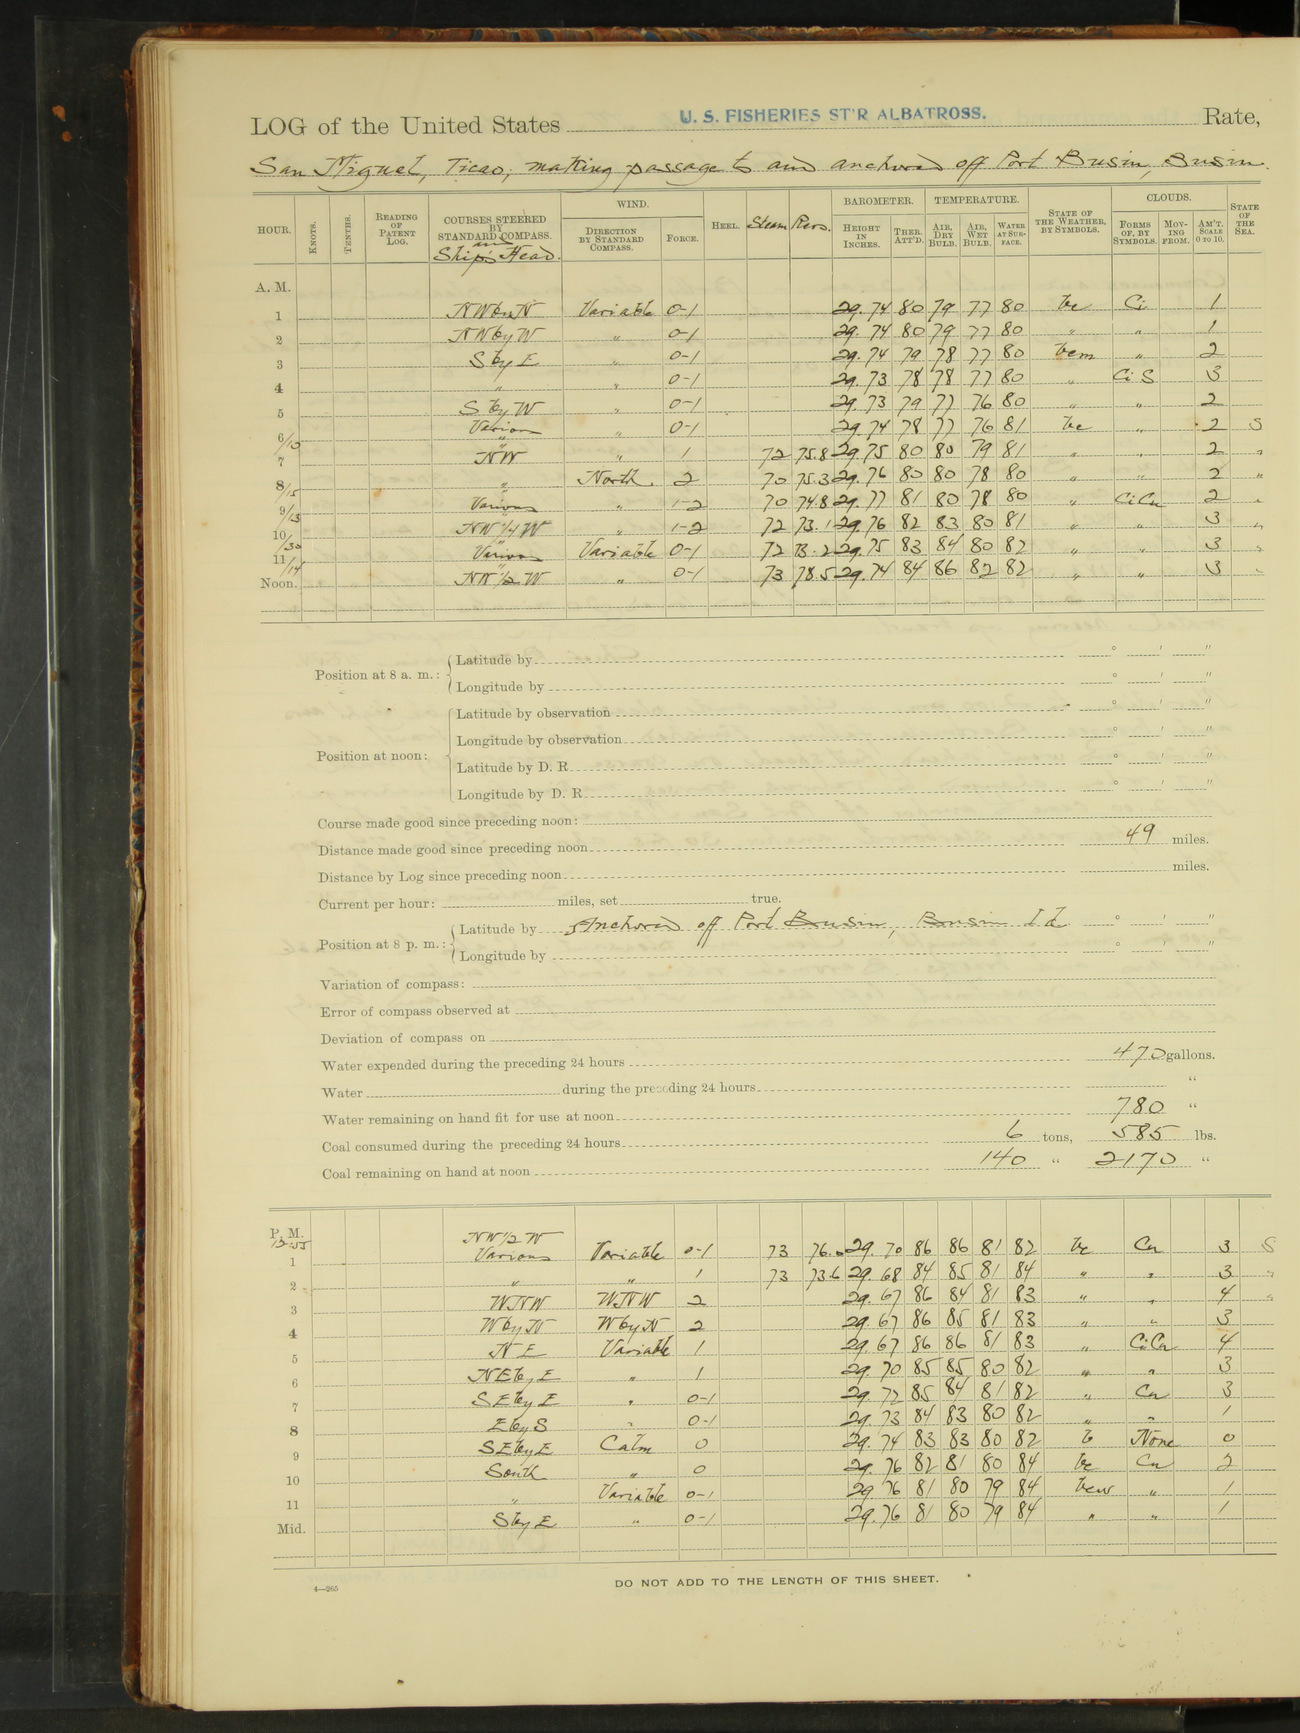 LOG of the United States U. S. FISHERIES ST'R ALBATROSS. Rate,
San Miguel, Ticao; making passage to and anchored off Port Busin, Busin
HOUR. KNOTS. TENTHS. READING OF PATENT LOG. COURSES STEERED BY STANDARD COMPASS. and Ship's Head. WIND. DIRECTION BY STANDARD COMPASS. FORCE. HEEL. Steam Revs. BAROMETER. HEIGHT IN INCHES. THER. ATT'D. TEMPERATURE. AIR, DRY BULB. AIR, WET BULB. WATER AT SURFACE. STATE OF THE WEATHER, BY SYMBOLS. CLOUDS. FORMS OF, BY SYMBOLS. MOVING FROM. AM'T. SCALE 0 TO 10. STATE OF THE SEA.
A. M.
1 NWbyN Variable 0-1 29.74 80 79 77 80 bc Ci 1
2 NWbyW " 0-1 29.74 80 79 77 80 " " 1
3 SbyE " 0-1 29.74 79 78 77 80 bcm " 2
4 " " 0-1 29.73 78 78 77 80 " Ci S 3
5 SbyW " 0-1 29.73 79 77 76 80 " " 2
6/10 Various " 0-1 29.74 78 77 76 81 bc " 2 S
7 " NW " 1 72 75.8 29.75 80 80 79 81 " " 2 "
8/15 " North 2 70 75.3 29.76 80 80 78 80 " " 2 "
9/13 Various " 1-2 70 74.8 29.77 81 80 78 80 " CiCu 2 "
10/30 NW 1/4 W " 1-2 72 73.1 29.76 82 83 80 81 " " 3 "
11/14 Various Variable 0-1 72 73.2 29.75 83 84 80 82 " " 3 "
Noon. NW 1/2 W " 0-1 73 78.5 29.74 84 86 82 82 " " 3 "
Position at 8 a. m.: Latitude by ° ' "
Longitude by ° ' "
Position at noon: Latitude by observation ° ' "
Longitude by observation ° ' "
Latitude by D. R. ° ' "
Longitude by D. R. ° ' "
Course made good since preceding noon:
Distance made good since preceding noon 49 miles.
Distance by Log since preceding noon miles.
Current per hour: miles, set true.
Position at 8 p. m.: Latitude by Anchored off Port Busin, Busin Id ° ' "
Longitude by ° ' "
Variation of compass:
Error of compass observed at
Deviation of compass on
Water expended during the preceding 24 hours 470 gallons.
Water during the preceding 24 hours "
Water remaining on hand fit for use at noon 780 "
Coal consumed during the preceding 24 hours 6 tons, 585 lbs.
Coal remaining on hand at noon 140 " 2170 "
P. M. NW 1/2 W
12-55
1 Various Variable 0-1 73 76.0 29.70 86 86 81 82 bc Cu 3 S
2 " " 1 73 73.6 29.68 84 85 81 84 " " 3 "
3 WNW WNW 2 29.67 86 84 81 83 " " 4 "
4 WbyN WbyN 2 29.67 86 85 81 83 " " 3
5 NE Variable 1 29.67 86 86 81 83 " CiCu 4
6 NEbyE " 1 29.70 85 85 80 82 " " 3
7 SEbyE " 0-1 29.72 85 84 81 82 " Cu 3
8 EbyS " 0-1 29.73 84 83 80 82 " " 1
9 SEbyE Calm 0 29.74 83 83 80 82 b None 0
10 South " 0 29.76 82 81 80 84 bc Cu 2
11 " Variable 0-1 29 76 81 80 79 84 bcw " 1
Mid. SbyE " 0-1 29.76 81 80 79 84 " " 1
4—265 DO NOT ADD TO THE LENGTH OF THIS SHEET.